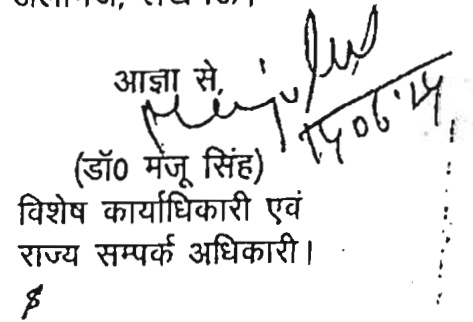 आज्ञा से,
14.06.24
(डॉ0 मंजू सिंह)
विशेष कार्याधिकारी एवं
राज्य सम्पर्क अधिकारी।